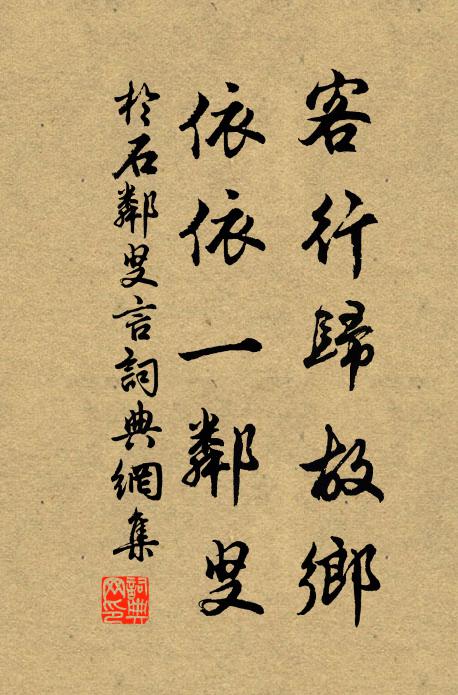 客行歸故鄉
依依一鄰叟
於石鄰叟言詞典網集
詞典網印